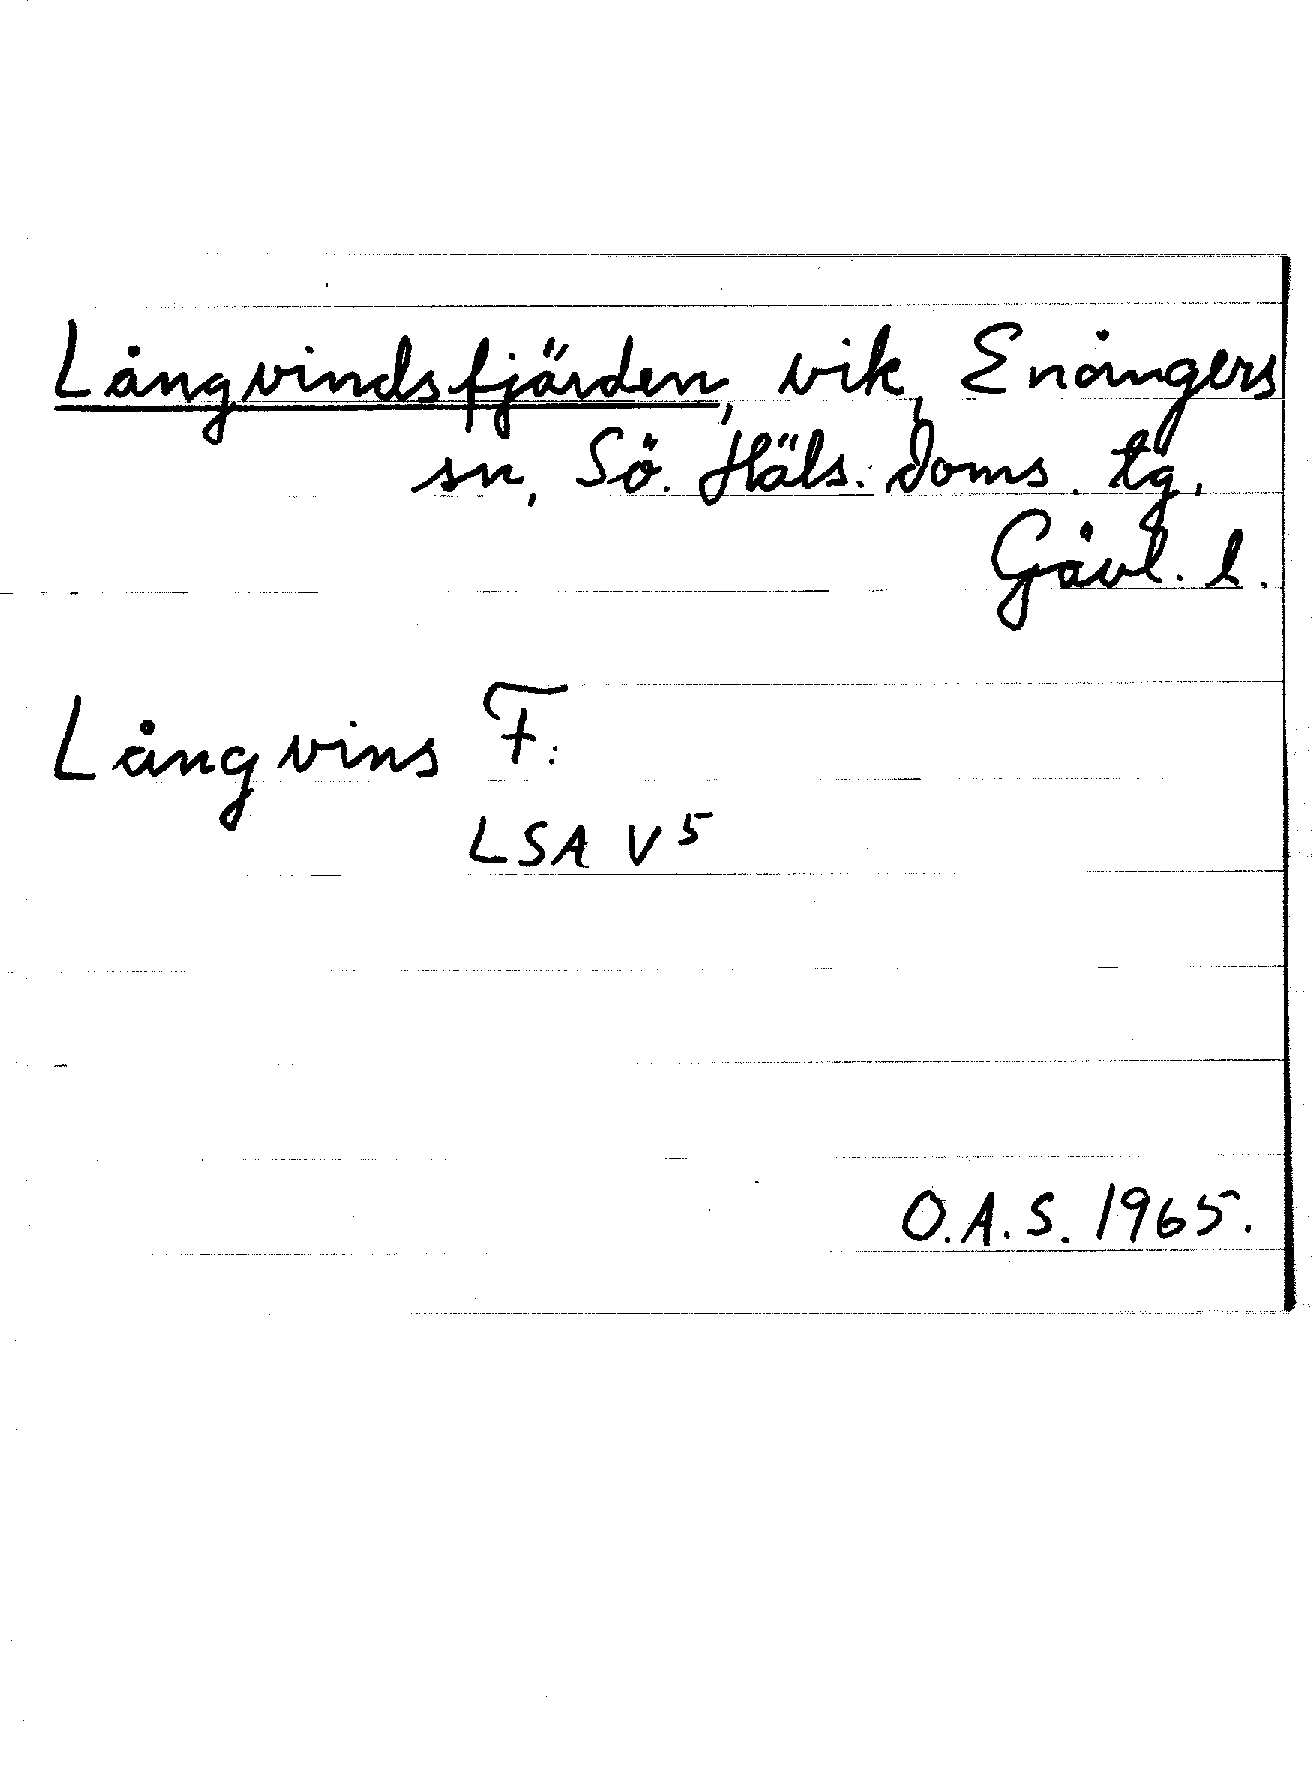 Långvindsfjärden, vik, Enångers
sn, Sö. Häls. Doms. tg.
Gävl. l.
Långvins F:
LSA V5
O.A.S. 1965.